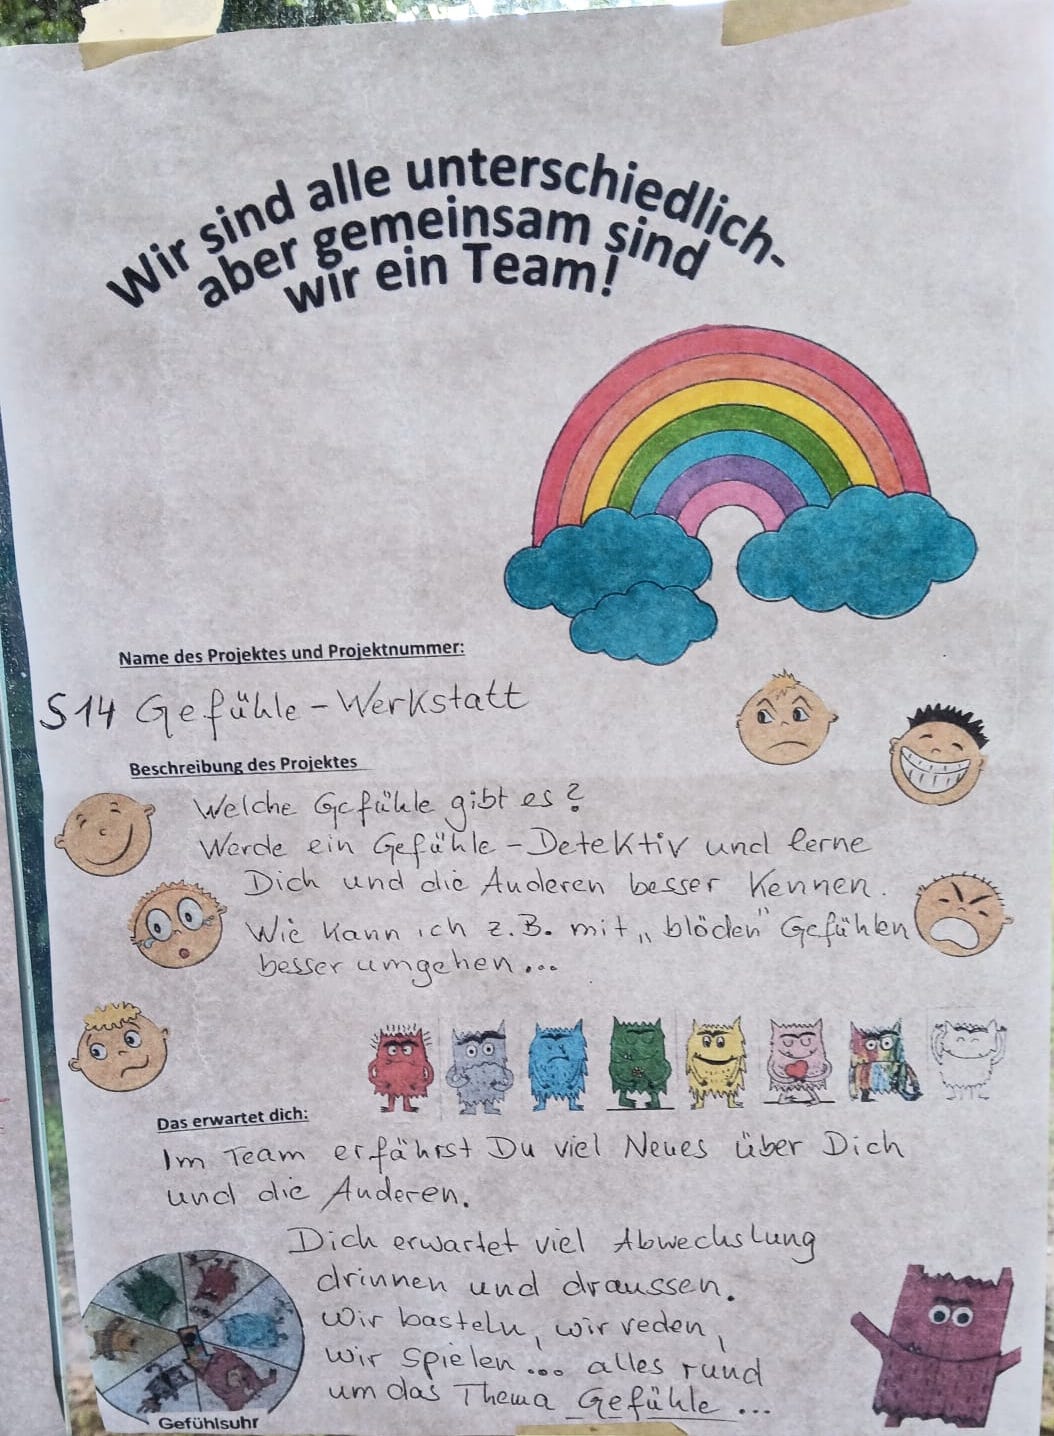 Wir sind alle unterschiedlich-
aber gemeinsam sind
wir ein Team!
Name des Projektes und Projektnummer:
S14 Gefühle-Werkstatt
Beschreibung des Projektes
Welche Gefühle gibt es?
Werde ein Gefühle-Detektiv und lerne
Dich und die Anderen besser kennen.
Wie kann ich z.B. mit „blöden" Gefühlen
besser umgehen...
Das erwartet dich:
Im Team erfährst Du viel Neues über Dich
und die Anderen.
Dich erwartet viel Abwechslung
drinnen und draussen.
Wir basteln, wir reden,
wir spielen... alles rund
um das Thema Gefühle...
Gefühlsuhr